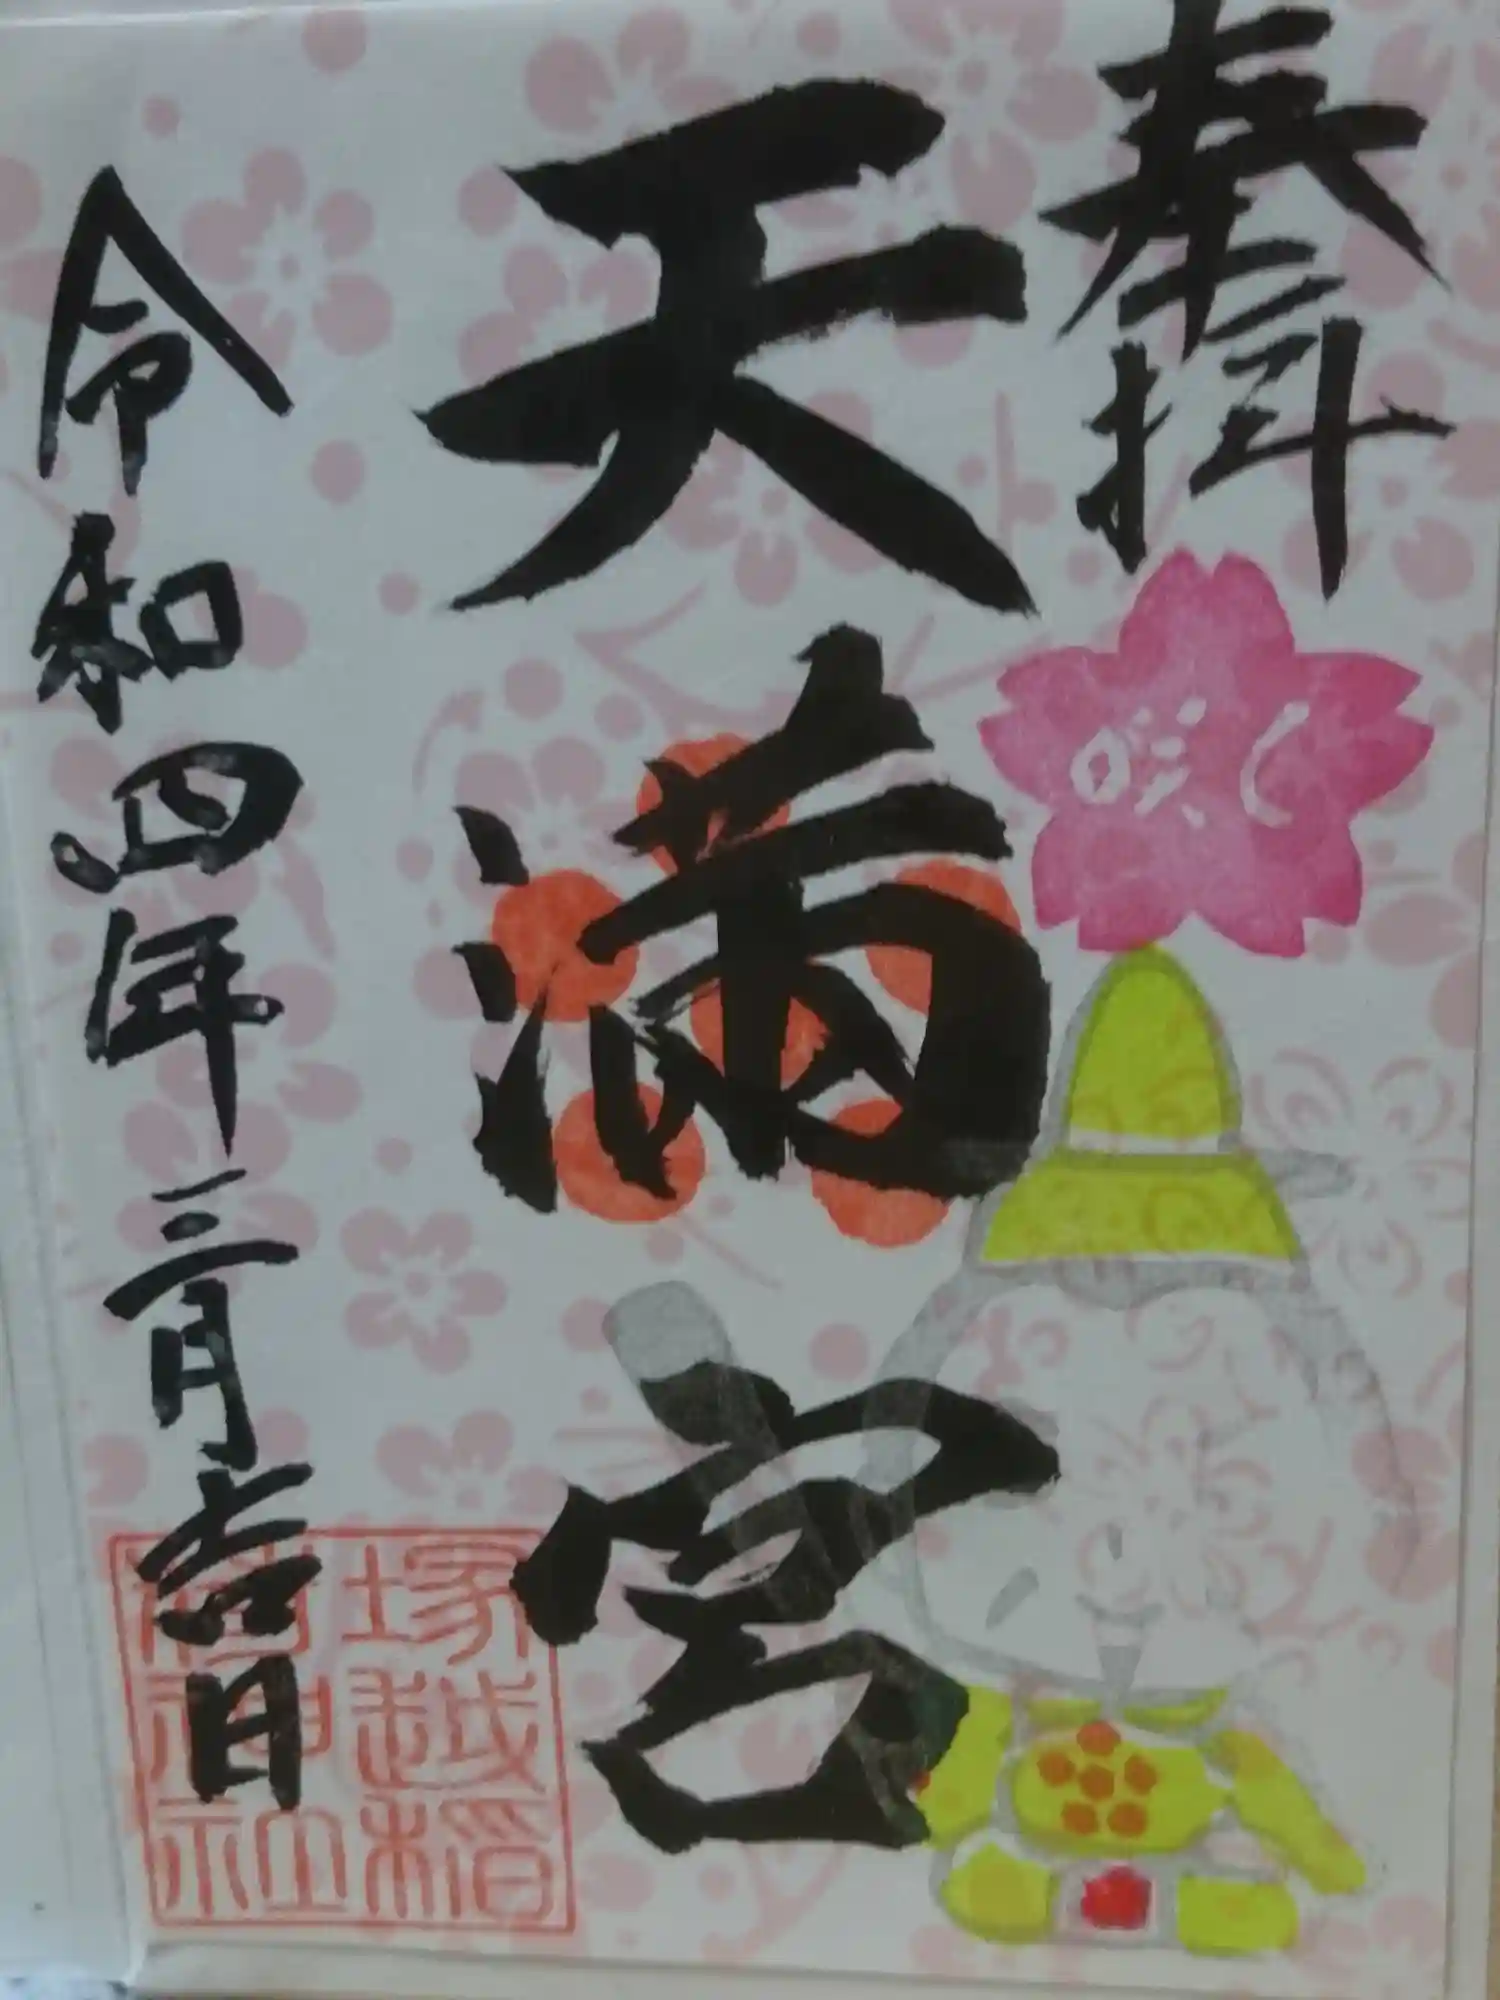 奉拝
天満宮
令和四年三月吉日
塚越稲
荷神社